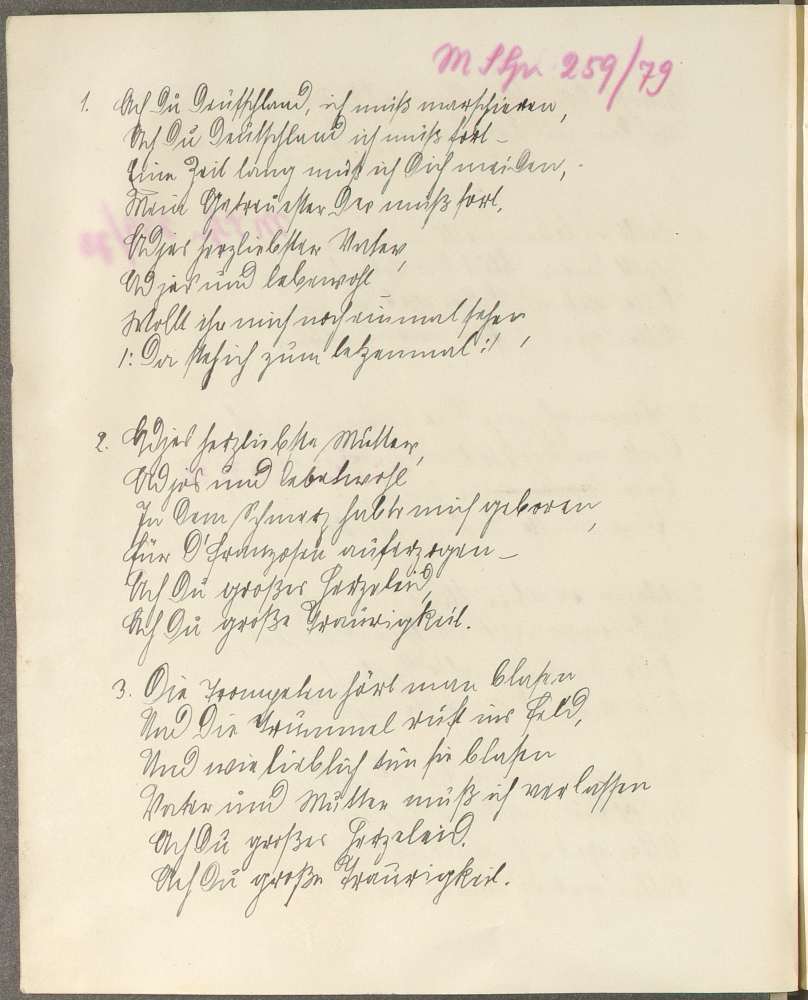 M Spr 259/79
1. Ach Du Deutschland, ich muß marschieren,
Ach Du Deutschland ich muß fort –
Eine Zeit lang muß ich Dich meiden,
Mein Getreuester Der muß fort.
Adjes herzliebster Vater,
Adjes und lebewohl
Wollt ihr mich noch einmal sehen
/: Da steh ich zum letzenmal :/
2. Adjes herzliebste Mutter,
Adjes und lebetwohl
In dem Schmerz habt mich geboren,
Für D' Franzosen auferzogen –
Ach Du großes Herzeleid,
Ach Du große Traurigkeit.
3. Die Trompeten hört man blasen
Und Die Trummel ruft ins Feld,
Und wie lieblich tun sie blasen
Vater und Mutter muß ich verlassen
Ach Du großes Herzeleid.
Ach Du große Traurigkeit.